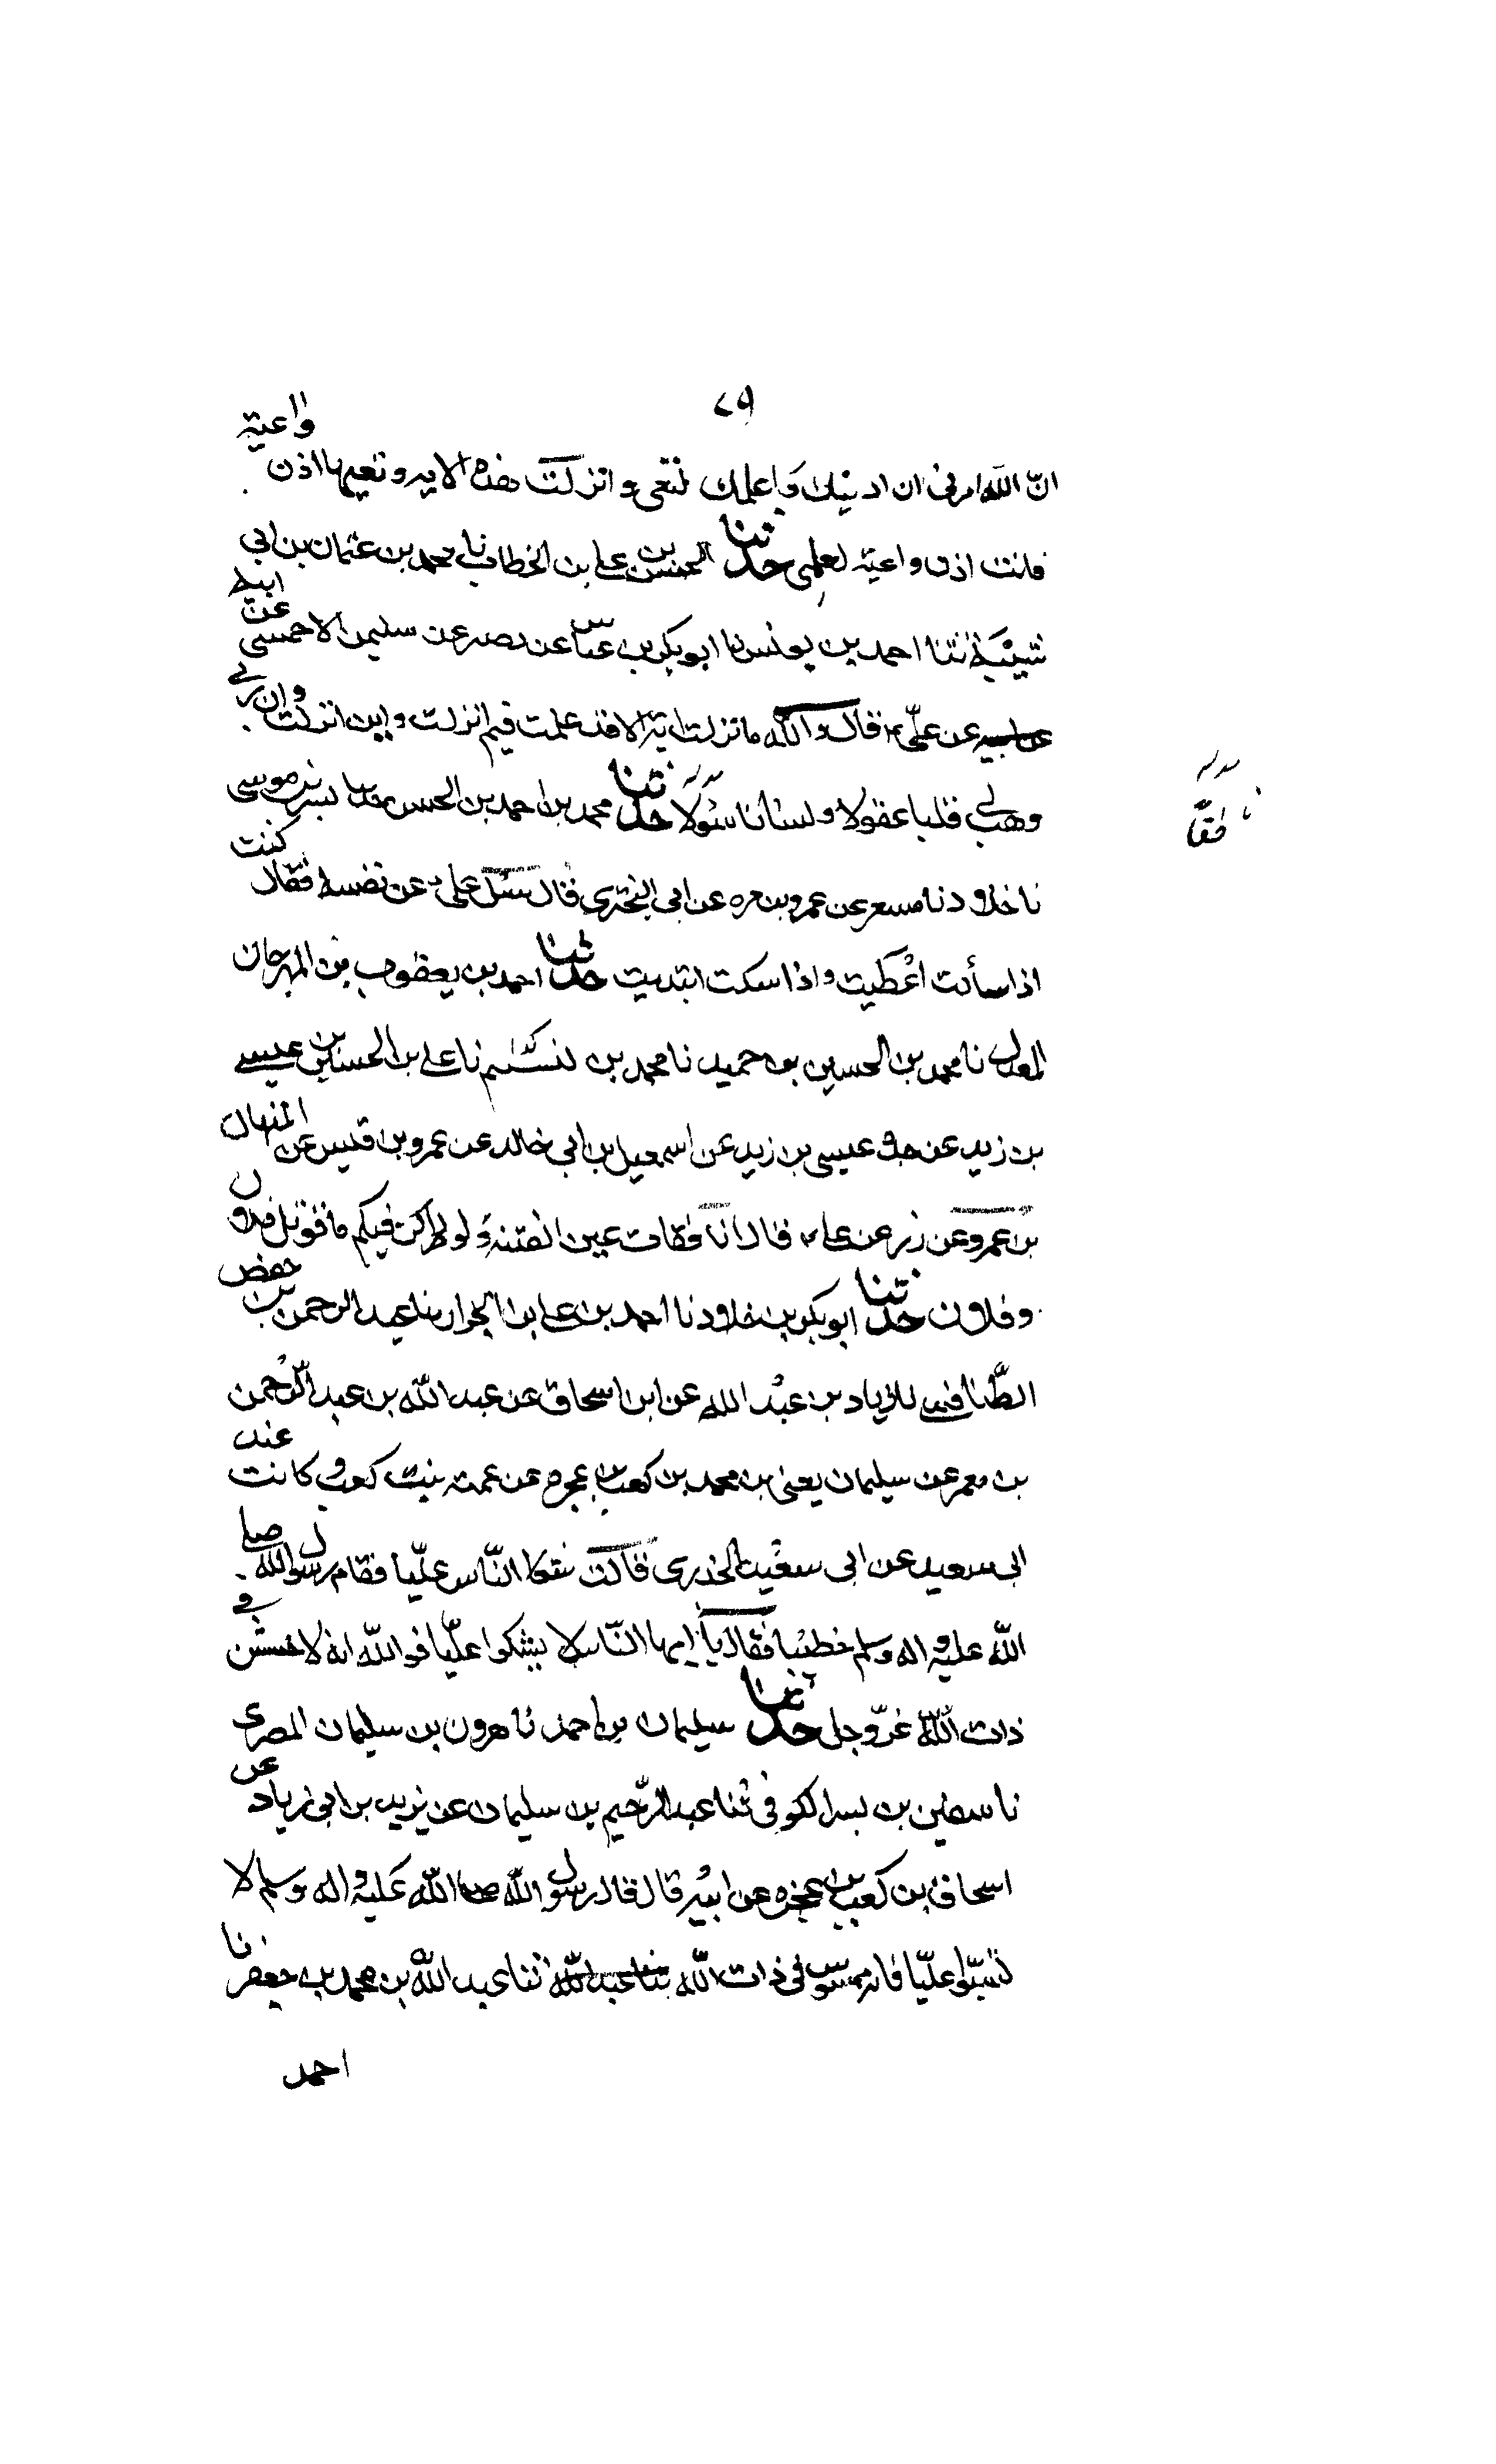 ٧٩
انّ الله امرنى ان ادنيك وَاعلمك لتعى وانزلت هذه الايه وتعيها اذن واعية
فانت اذن واعية لعلمى حدثنا الحسن بن على بن الخطاب نا محمد بن عثمان بن ابى
شيبة ثنا احمد بن يونس نا ابوبكر بن عياش عن نصير عن سليمن الاحمسى عن ابيه
عن ابيه عن علىّ قال والله مانزلت اية الا قد علمت فيم انزلت واين انزلت وان ربى
وهب لى قلبا عقولا ولسانا سئولا حدثنا محمد بن احمد بن الحسن بشر بن موسى
ناطقاً
نا خلاد نا مسعر عن عمرو بن مره عن ابى البخترى قال سئل على عن نفسه فقال كنت
اذا سألت اعْطيت واذا سكت ابتديت حدثنا احمد بن يعقوب بن المهرجان
المعدل نا محمد بن الحسين بن حميد نا محمد بن نا على بن الحسين بن عيسى
بن زيد عن جده عيسى بن زيد عن اسمعيل بن ابى خالد عن عمرو بن قيس عن المنهال
بن عمرو عن زر عن على قال انا فقات عين الفتنة ولو لم اكن فيكم ماقوتل فلان
وفلان حدثنا ابوبكر بن خلاد نا احمد بن على بن نا عبد الرحمن بن حفص
الطّنافسى نا زياد بن عبْد الله عن ابن اسحاق عن عبد اللّه بن عبد الرّحمن
بن معمر عن سليمان يعنى بن محمد بن كعب بن عجره عن عمته بنت كعب وكانت عند
ابى سعيد عن ابى سعيد الخدرى قالت شكا النّاس عليّا فقام رسول الله صلى
اللّه عليه واله وسلم خطيبا فقال يا ايها النّاس لا يشكوا عليّا فوالله انه لاخشن فى
ذات اللّه عزّوجل حدثنا سليمان بن احمد نا هرون بن سليمان المصرى
نا سفين بن بسر الكوفى ثنا عبد الرّحيم بن سليمان عن يزيد بن ابى زياد عن
اسحاق بن كعب بن عجره عن ابيه قال قال رسول الله صلى اللّه عَليه واله وسلم لا
تسبّوا عليّا فانه ممسوس فى ذات اللّه ثنا عبد اللّه ثنا عبد اللّه بن محمد بن جعفر نا
احمد